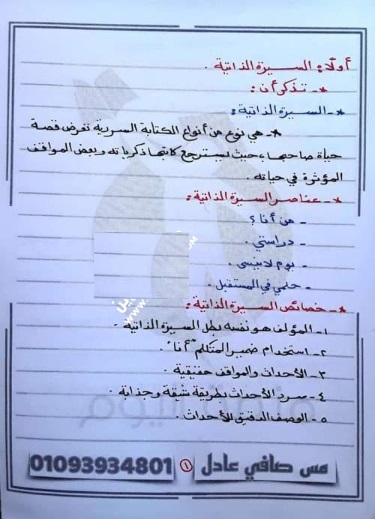 أولًا: السيرة الذاتية.
* - تذكر أن:
* - السيرة الذاتية:
* - هي نوع من أنواع الكتابة السردية تعرض قصة
حياة صاحبها، حيث يسترجع كاتبها ذكرياته وبعض المواقف
المؤثرة في حياته.
* - عناصر السيرة الذاتية:
- من أنا؟
- دراستي.
- يوم لا ينسى.
- حلمي في المستقبل.
* - خصائص السيرة الذاتية:
١- المؤلف هو نفسه بطل السيرة الذاتية.
٢- استخدام ضمير المتكلم "أنا".
٣- الأحداث والمواقف حقيقية.
٤- سرد الأحداث بطريقة شيقة وجذابة.
٥- الوصف الدقيق للأحداث.
مس صافي عادل ١ 01093934801